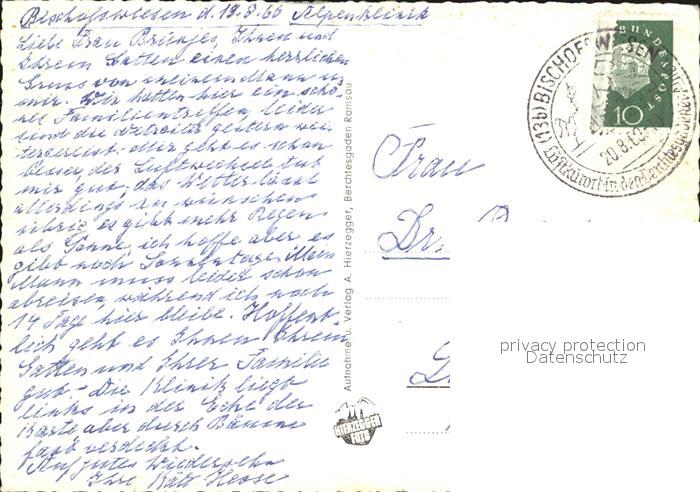 Bischofswiesen d. 19.8.60 Alpenklinik
Liebe Frau Brünjes, Ihnen und
Ihrem Gatten einen herzlichen
Gruss von meinem Mann u.
mir. Wir hatten hier ein schö-
nes Familientreffen, leider
sind die gestern wei-
tergereist. Mir geht es schon
besser, der Luftwechsel tut
mir gut, das Wetter lässt
allerdings zu wünschen
übrig, es gibt mehr Regen
als Sonne, ich hoffe aber es
gibt noch Sonnentage. Mein
Mann muss leider schon
abreisen während ich noch
14 Tage hier bleibe. Hoffent-
lich geht es Ihnen Ihrem
Gatten und Ihrer Familie
gut. - Die Klinik liegt
links in der Ecke der
Karte aber durch Bäume
fast verdeckt.
Auf gutes Wiedersehn
Ihre Hesse
Aufnahme u. Verlag A. Hierzegger, Berchtesgaden Ramsau
HIERZEGGER
FOTO
Frau
Dr.
DEUTSCHE BUNDESPOST
10
(13b) BISCHOFSWIESEN
20.8.60
Luftkurort in den Berchtesgadener
privacy protection
Datenschutz